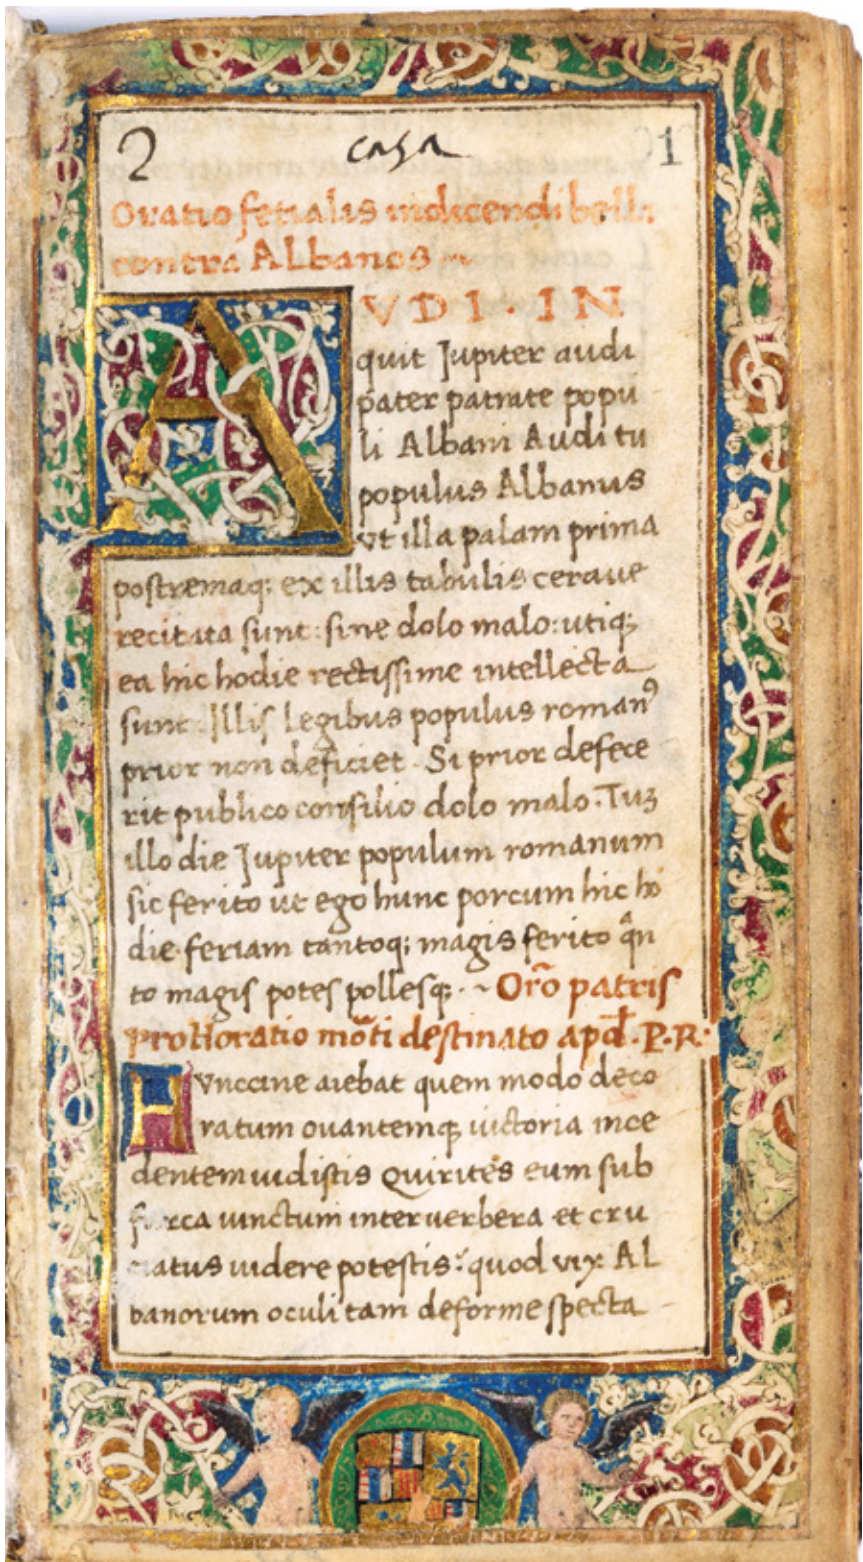 2 casa 1
Oratio fetialis indicendi belli
contra Albanos ~
AVDI · IN
quit Jupiter audi
pater patrate popu
li Albani Audi tu
populus Albanus
vt illa palam prima
postremaq; ex illis tabulis cerave
recitata sunt: sine dolo malo: utiq;
ea hic hodie rectissime intellecta
sunt Illis legibus populus romanꝰ
prior non deficiet. Si prior defece
rit publico consilio dolo malo. Tuʒ
illo die Jupiter populum romanum
sic ferito ut ego hunc porcum hic ho
die feriam tantoq; magis ferito qn̄
to magis potes pollesq. ~ Orō patris
pro Horatio mōti destinato apd. P. R.
Hvnccine aiebat quem modo deco
ratum ouantemq; uictoria ince
dentem uidistis Quirites eum sub
furca uinctum inter uerbera et cru
ciatus uidere potestis? quod vix Al
banorum oculi tam deforme specta